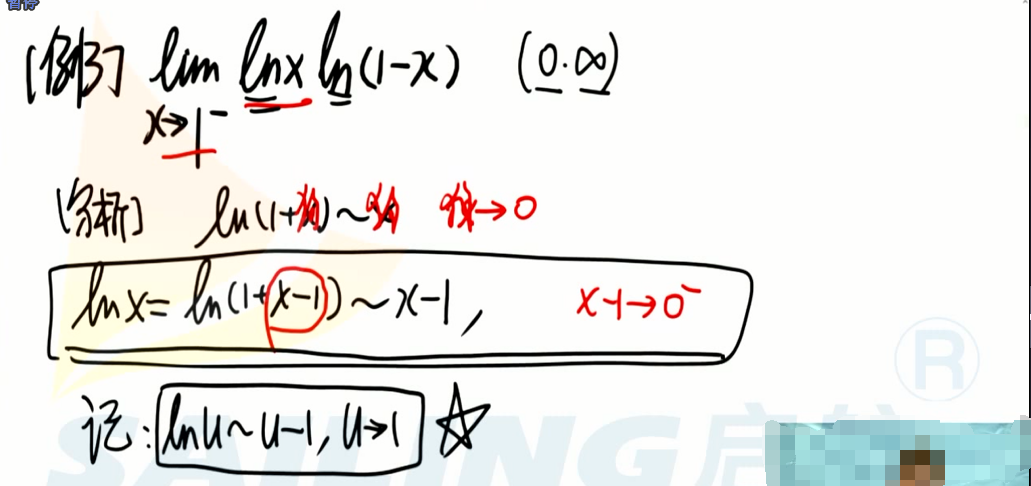 暂停
[例3] lim lnx ln(1-x) (0·∞)
x→1⁻
[分析] ln(1+狗)~狗 狗→0
lnx=ln(1+x-1)~x-1, x-1→0⁻
记: lnu~u-1, u→1 ☆
SAILING启航 ®